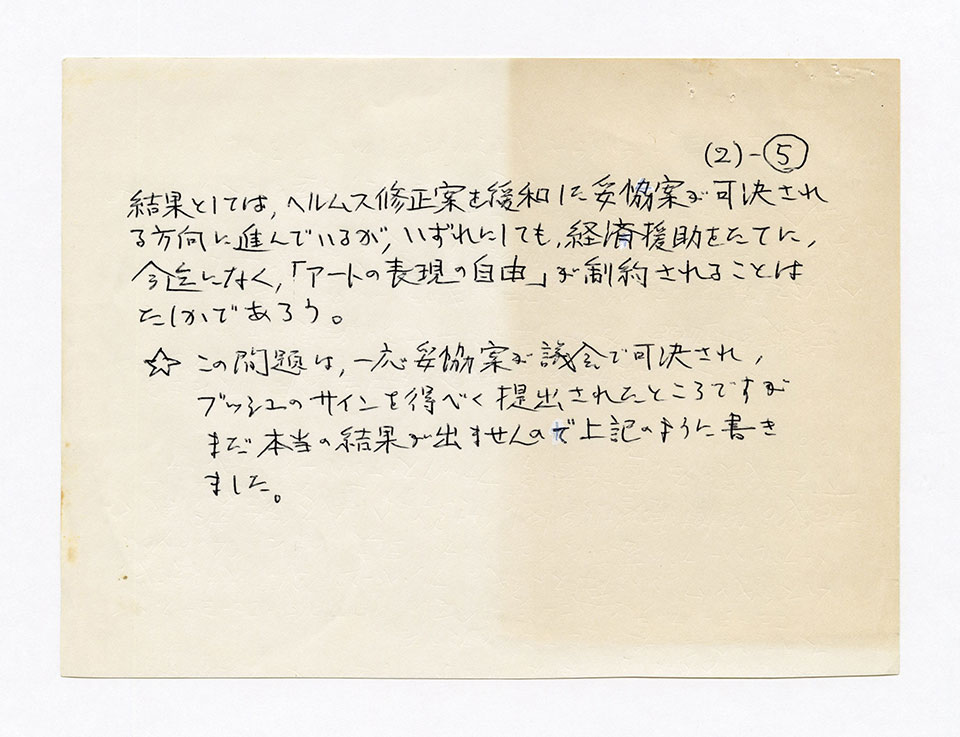 (2)-⑤
結果としては,ヘルムス修正案を緩和した妥協案が可決され
る方向に進んでいるが,いずれにしても,経済援助をたてに,
今迄になく,「アートの表現の自由」が制約されることは
たしかであろう。
☆ この問題は,一応妥協案が議会で可決され,
ブッシュのサインを得べく提出されたところですが
まだ本当の結果が出ませんので上記のように書き
ました。